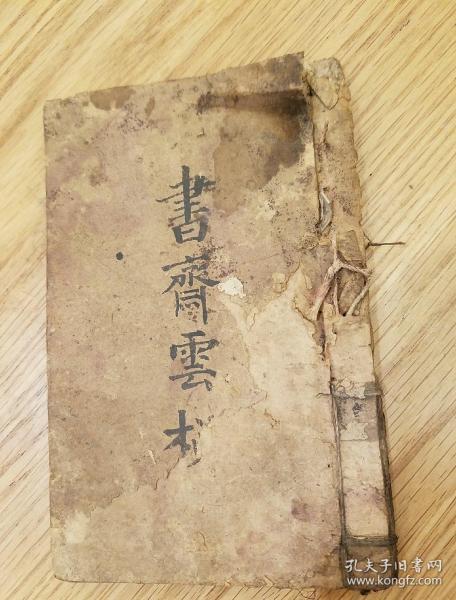 書齋雲
孔夫子旧书网
www.kongfz.com